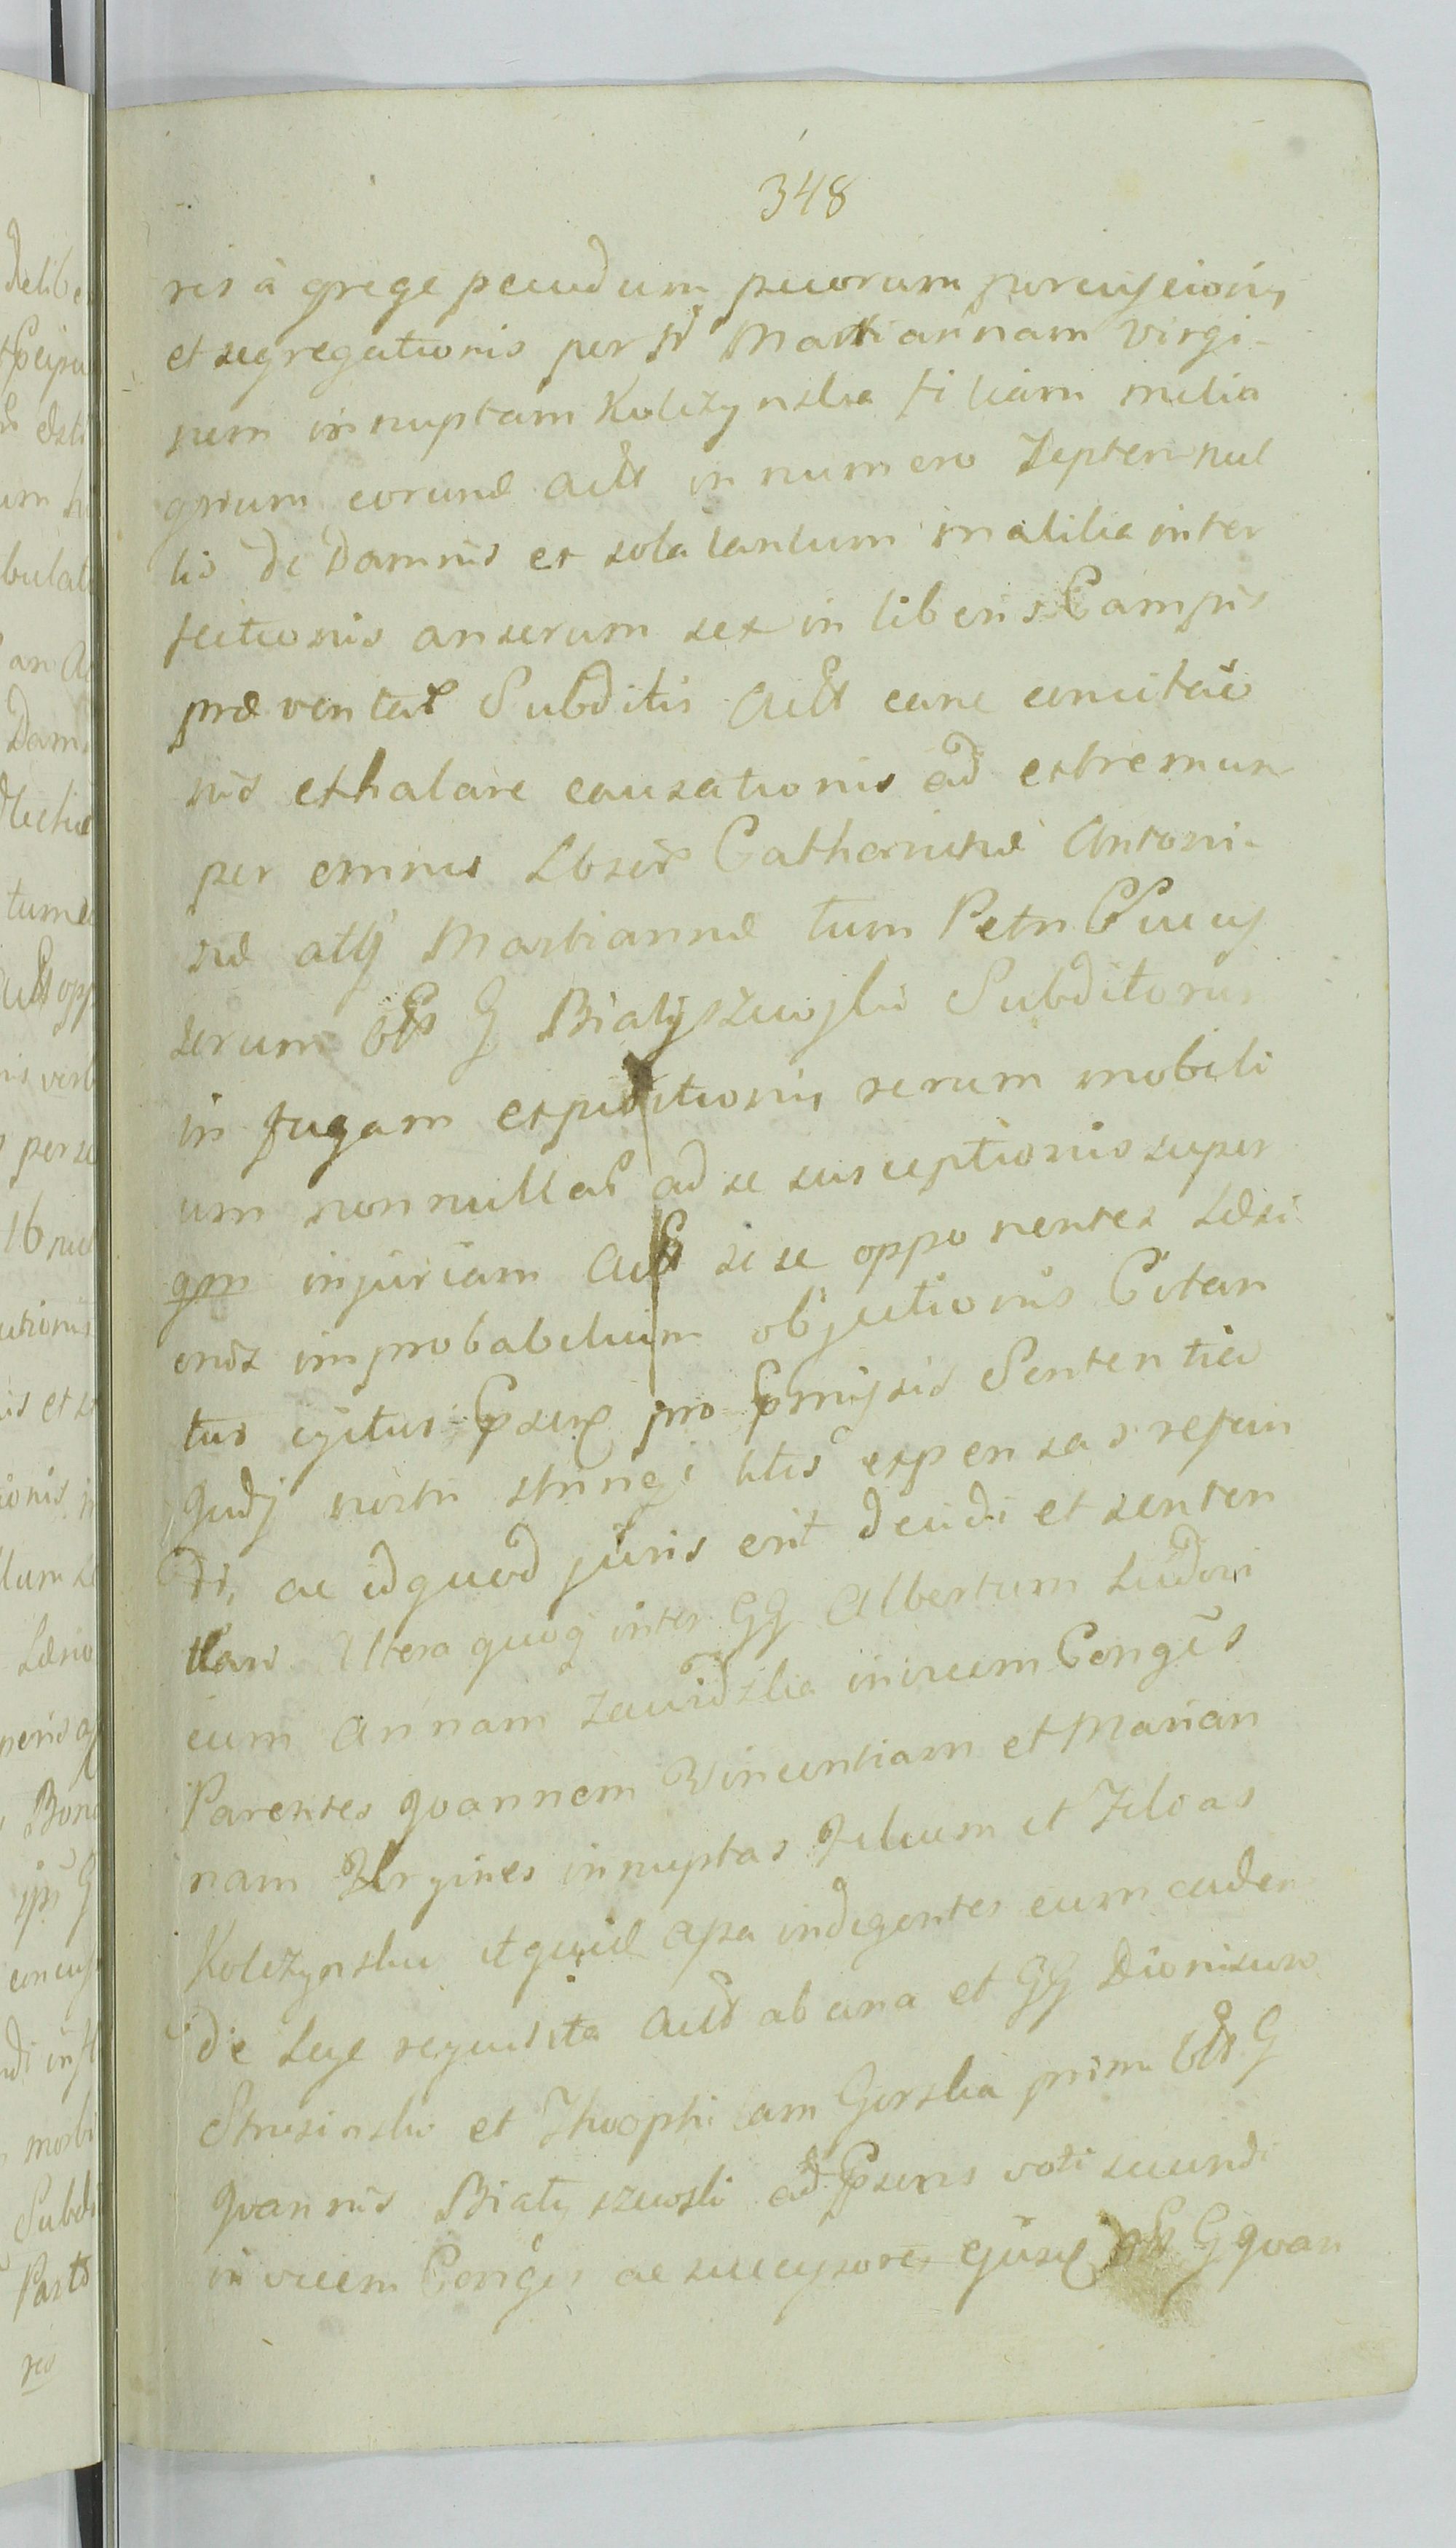 348
ris à grege pecudum suorum percussionis
et segregationis per Martiannam Virgi-
nem innuptam Kolczynska filiam melia
grium eorund Actt in numero Septem nul
lis de Damnis ex sola tantum malitia inter
fectionis anserum sex in liberis Campis
præventar Subditis Actt cane concitatio
nis exhalare causationis ad extremum
per eminus Catharinæ Antoni-
næ atq Martiannæ tum Petri
serum G Białyszewski Subditorum
in fugam expeditionis rerum mobili
um nonnullar ad se susceptionis super
qm injuriam Actt sese opponentes Læsi
onis improbabilium objectionis Citan
tur igitur pro pmissis Sententia
Judj nostri stringi litis expensas refun
di, ac id quod juris erit decidi et senten
tiari Altera quoq inter GG Albertum Ludovi
cum Annam Zawidzkie invicem Conges
Parentes Joannem Vincentiam et Marian
nam Virgines innuptas Filium et Filias
Kolczynskie itquid apsa indigentes cum caden
De Lege requisita Actt ab una et GG Dionisium
Strusinski et Theophilam Gorska primi G
Joannis Białyszewski ad voti secundi
invicem Conges ac successores ejusd G Joan